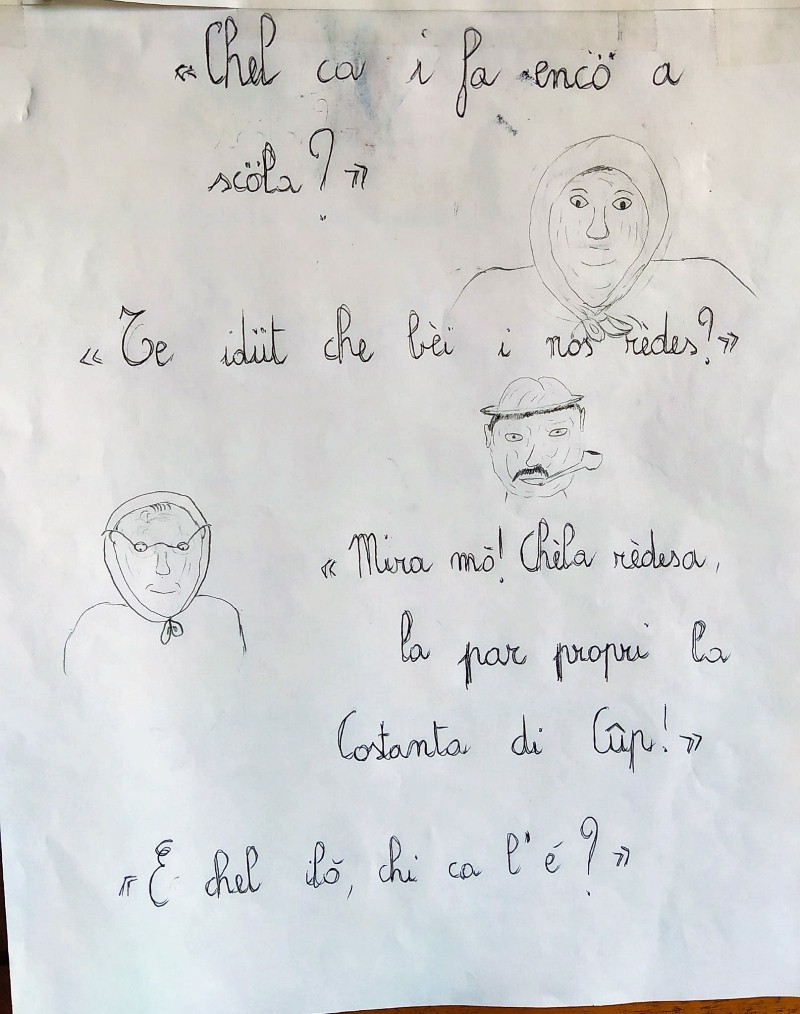 «Chel ca i fa encö a
scöla?»
«Te idüt che bèi i nòs rèdes?»
«Mira mò! Chèla rèdesa,
la par propri la
Costanta di Cûp!»
«E chel ilò, chi ca l'é?»